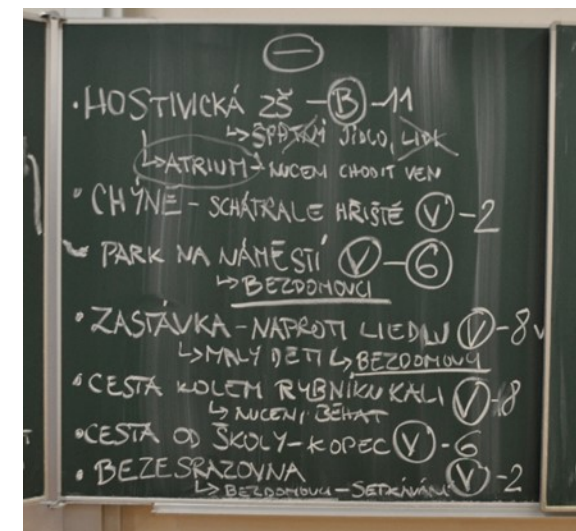 –
• HOSTIVICKÁ ZŠ – B – 11
↳ ŠPATNÝ JÍDLO, LIDI
↳ ATRIUM – NUCENÍ CHODIT VEN
• CHÝNĚ – SCHÁTRALÉ HŘIŠTĚ V – 2
PARK NA NÁMĚSTÍ V – 6
↳ BEZDOMOVCI
• ZASTÁVKA – NAPROTI LIEDLU V – 8
↳ MALÝ DĚTI ↳ BEZDOMOVCI
• CESTA KOLEM RYBNÍKU KALI V – 8
↳ NUCENI BĚHAT
• CESTA OD ŠKOLY – KOPEC V – 6
• BEZESRAZOVNA V – 2
↳ BEZDOMOVCI – SETKÁVÁNÍ